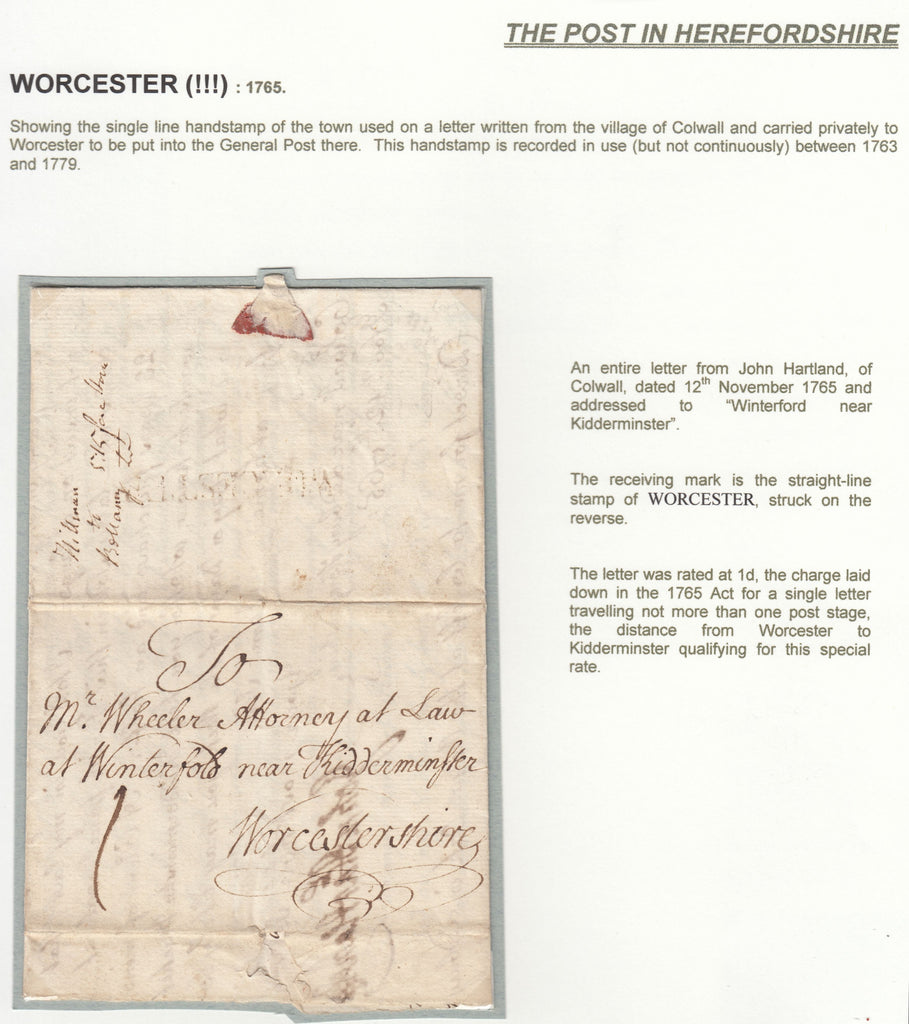 THE POST IN HEREFORDSHIRE
WORCESTER (!!!) : 1765.
Showing the single line handstamp of the town used on a letter written from the village of Colwall and carried privately to
Worcester to be put into the General Post there. This handstamp is recorded in use (but not continuously) between 1763
and 1779.
An entire letter from John Hartland, of
Colwall, dated 12th November 1765 and
addressed to "Winterford near
Kidderminster".
The receiving mark is the straight-line
stamp of WORCESTER, struck on the
reverse.
The letter was rated at 1d, the charge laid
down in the 1765 Act for a single letter
travelling not more than one post stage,
the distance from Worcester to
Kidderminster qualifying for this special
rate.
to
To
Mr. Wheeler Attorney at Law
at Winterfold near Kidderminster
1
Worcestershire